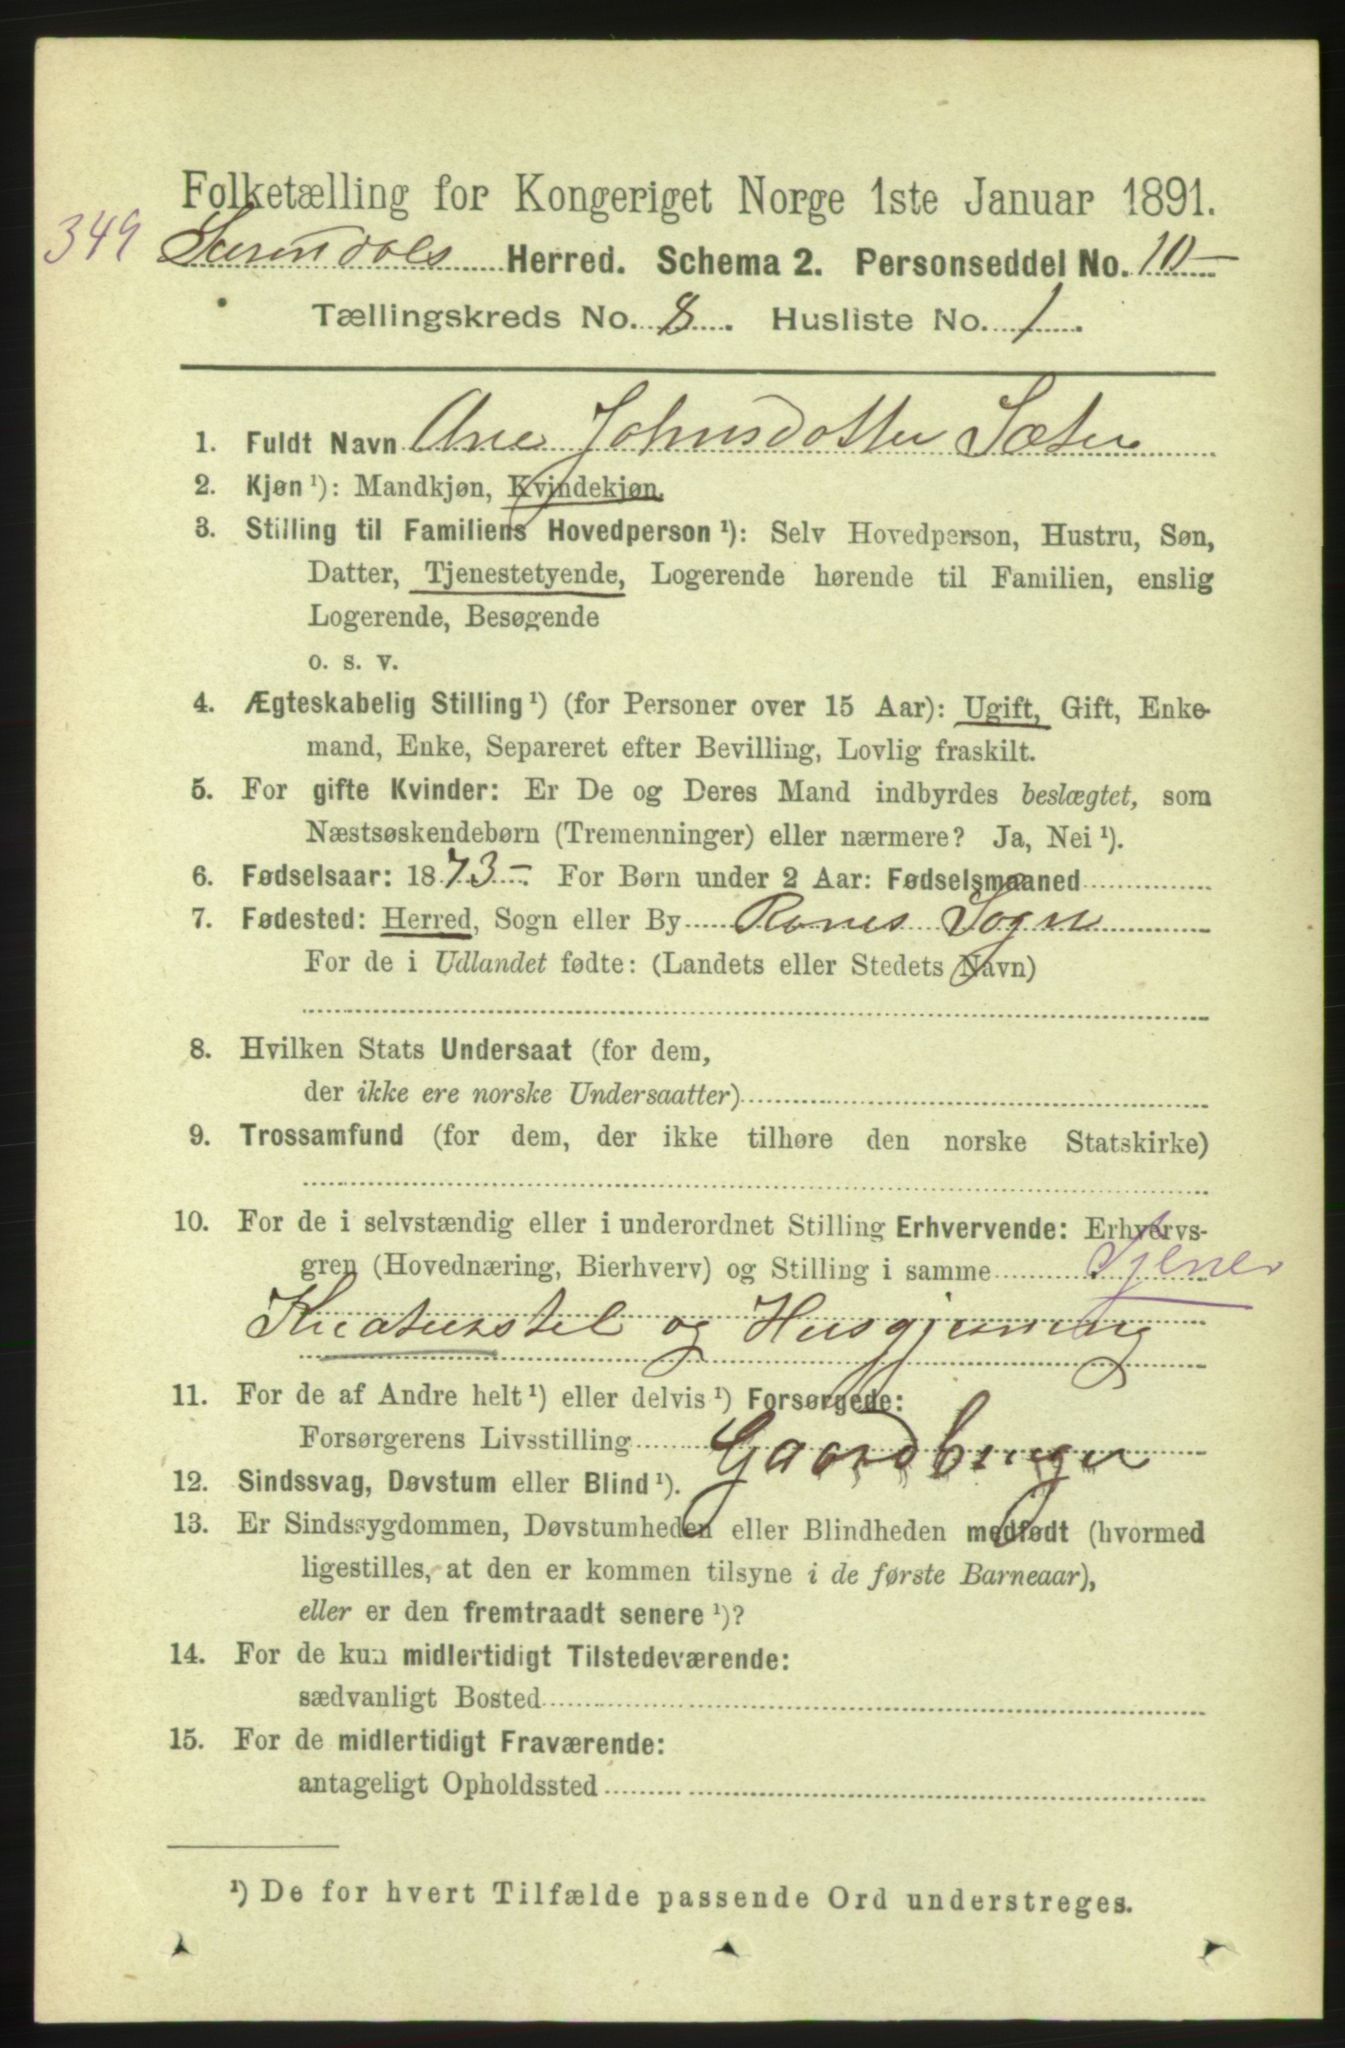 Folketælling for Kongeriget Norge 1ste Januar 1891.
349 Surendals Herred. Schema 2. Personseddel No. 10-
Tællingskreds No. 8. Husliste No. 1.
1. Fuldt Navn Ane Johnsdotter Sæter
2. Kjøn ¹): Mandkjøn, Kvindekjøn.
3. Stilling til Familiens Hovedperson ¹): Selv Hovedperson, Hustru, Søn,
Datter, Tjenestetyende, Logerende hørende til Familien, enslig
Logerende, Besøgende
o. s. v.
4. Ægteskabelig Stilling ¹) (for Personer over 15 Aar): Ugift, Gift, Enke-
mand, Enke, Separeret efter Bevilling, Lovlig fraskilt.
5. For gifte Kvinder: Er De og Deres Mand indbyrdes beslægtet, som
Næstsøskendebørn (Tremenninger) eller nærmere? Ja, Nei ¹).
6. Fødselsaar: 1873-. For Børn under 2 Aar: Fødselsmaaned
7. Fødested: Herred, Sogn eller By Ranes Sogn
For de i Udlandet fødte: (Landets eller Stedets Navn)
8. Hvilken Stats Undersaat (for dem,
der ikke ere norske Undersaatter)
9. Trossamfund (for dem, der ikke tilhøre den norske Statskirke)
10. For de i selvstændig eller i underordnet Stilling Erhvervende: Erhvervs-
gren (Hovednæring, Bierhverv) og Stilling i samme Tjener
Kreaturstel og Husgjerning
11. For de af Andre helt ¹) eller delvis ¹) Forsørgede:
Forsørgerens Livsstilling Gaardbruger
12. Sindssvag, Døvstum eller Blind ¹).
13. Er Sindssygdommen, Døvstumheden eller Blindheden medfødt (hvormed
ligestilles, at den er kommen tilsyne i de første Barneaar),
eller er den fremtraadt senere ¹)?
14. For de kun midlertidigt Tilstedeværende:
sædvanligt Bosted
15. For de midlertidigt Fraværende:
antageligt Opholdssted
¹) De for hvert Tilfælde passende Ord understreges.